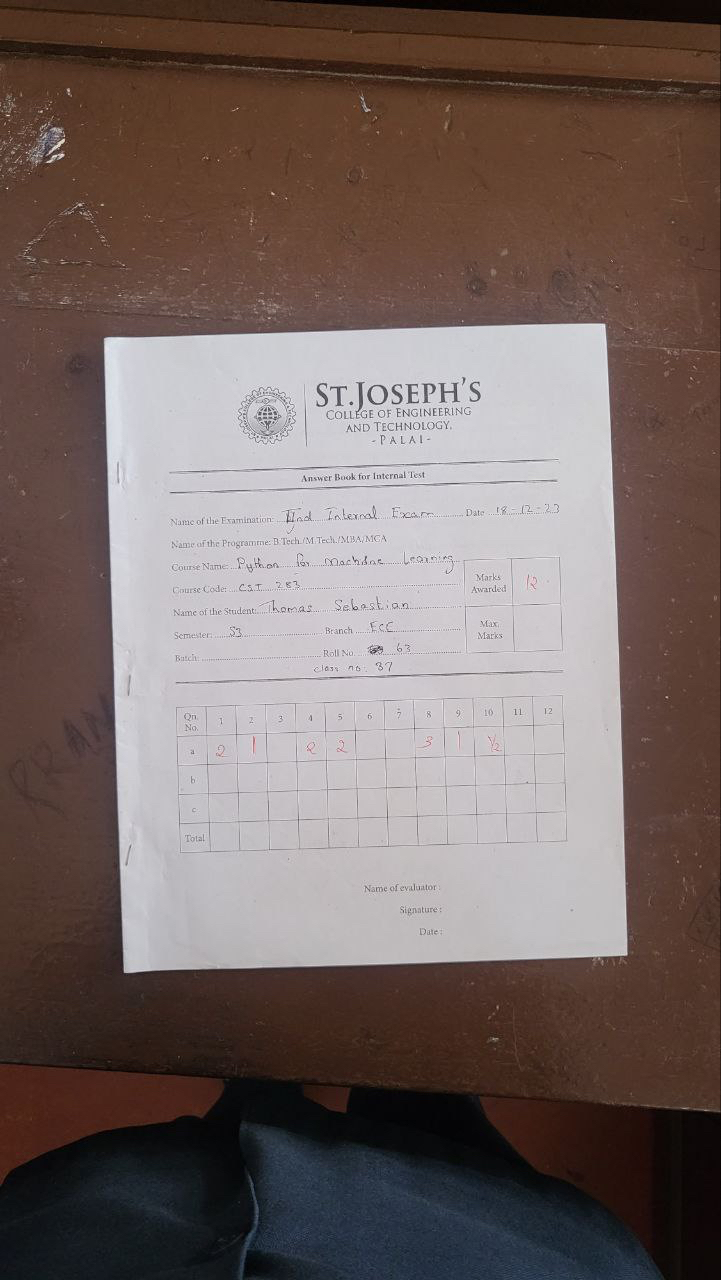 ST.JOSEPH'S
COLLEGE OF ENGINEERING
AND TECHNOLOGY,
- PALAI -
Answer Book for Internal Test
Name of the Examination: IInd Internal Exam Date 18-12-23
Name of the Programme: B.Tech./M.Tech./MBA/MCA
Course Name: Python for Machine Learning
Course Code: CST 283
Marks Awarded 12
Name of the Student: Thomas Sebastian
Semester: S3 Branch ECE
Max. Marks
Batch: Roll No. 63
class no: 37
Qn. No. 1 2 3 4 5 6 7 8 9 10 11 12
a 2 1 2 2 3 1 ½
b
c
Total
Name of evaluator :
Signature :
Date :